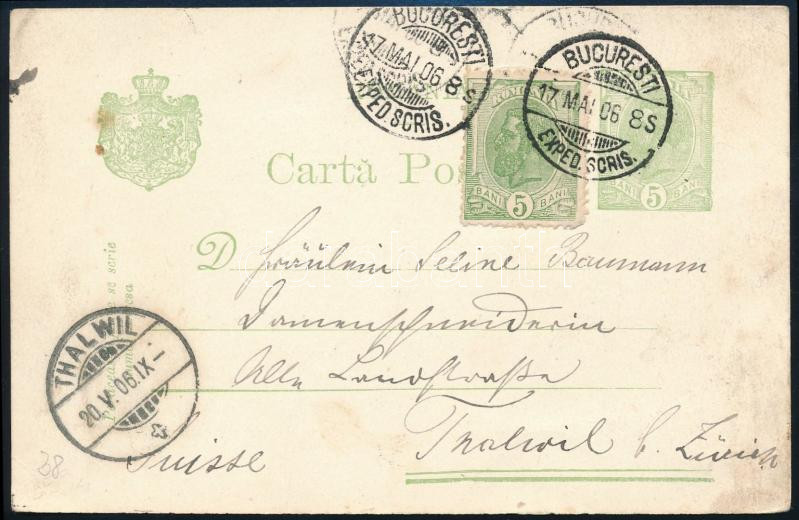 BUCURESTI
17 MAI 06 8S
EXPED. SCRIS.
BUCURESTI
17 MAI 06 8S
EXPED. SCRIS.
Cartă Pos
BANI 5 BANI
BANI 5 BANI
D Fräulein Seline Baumann
Damenschneiderin
Alte Landstraße
Thalwil b. Zürich
Suisse
THALWIL
20.V.06.IX-
38